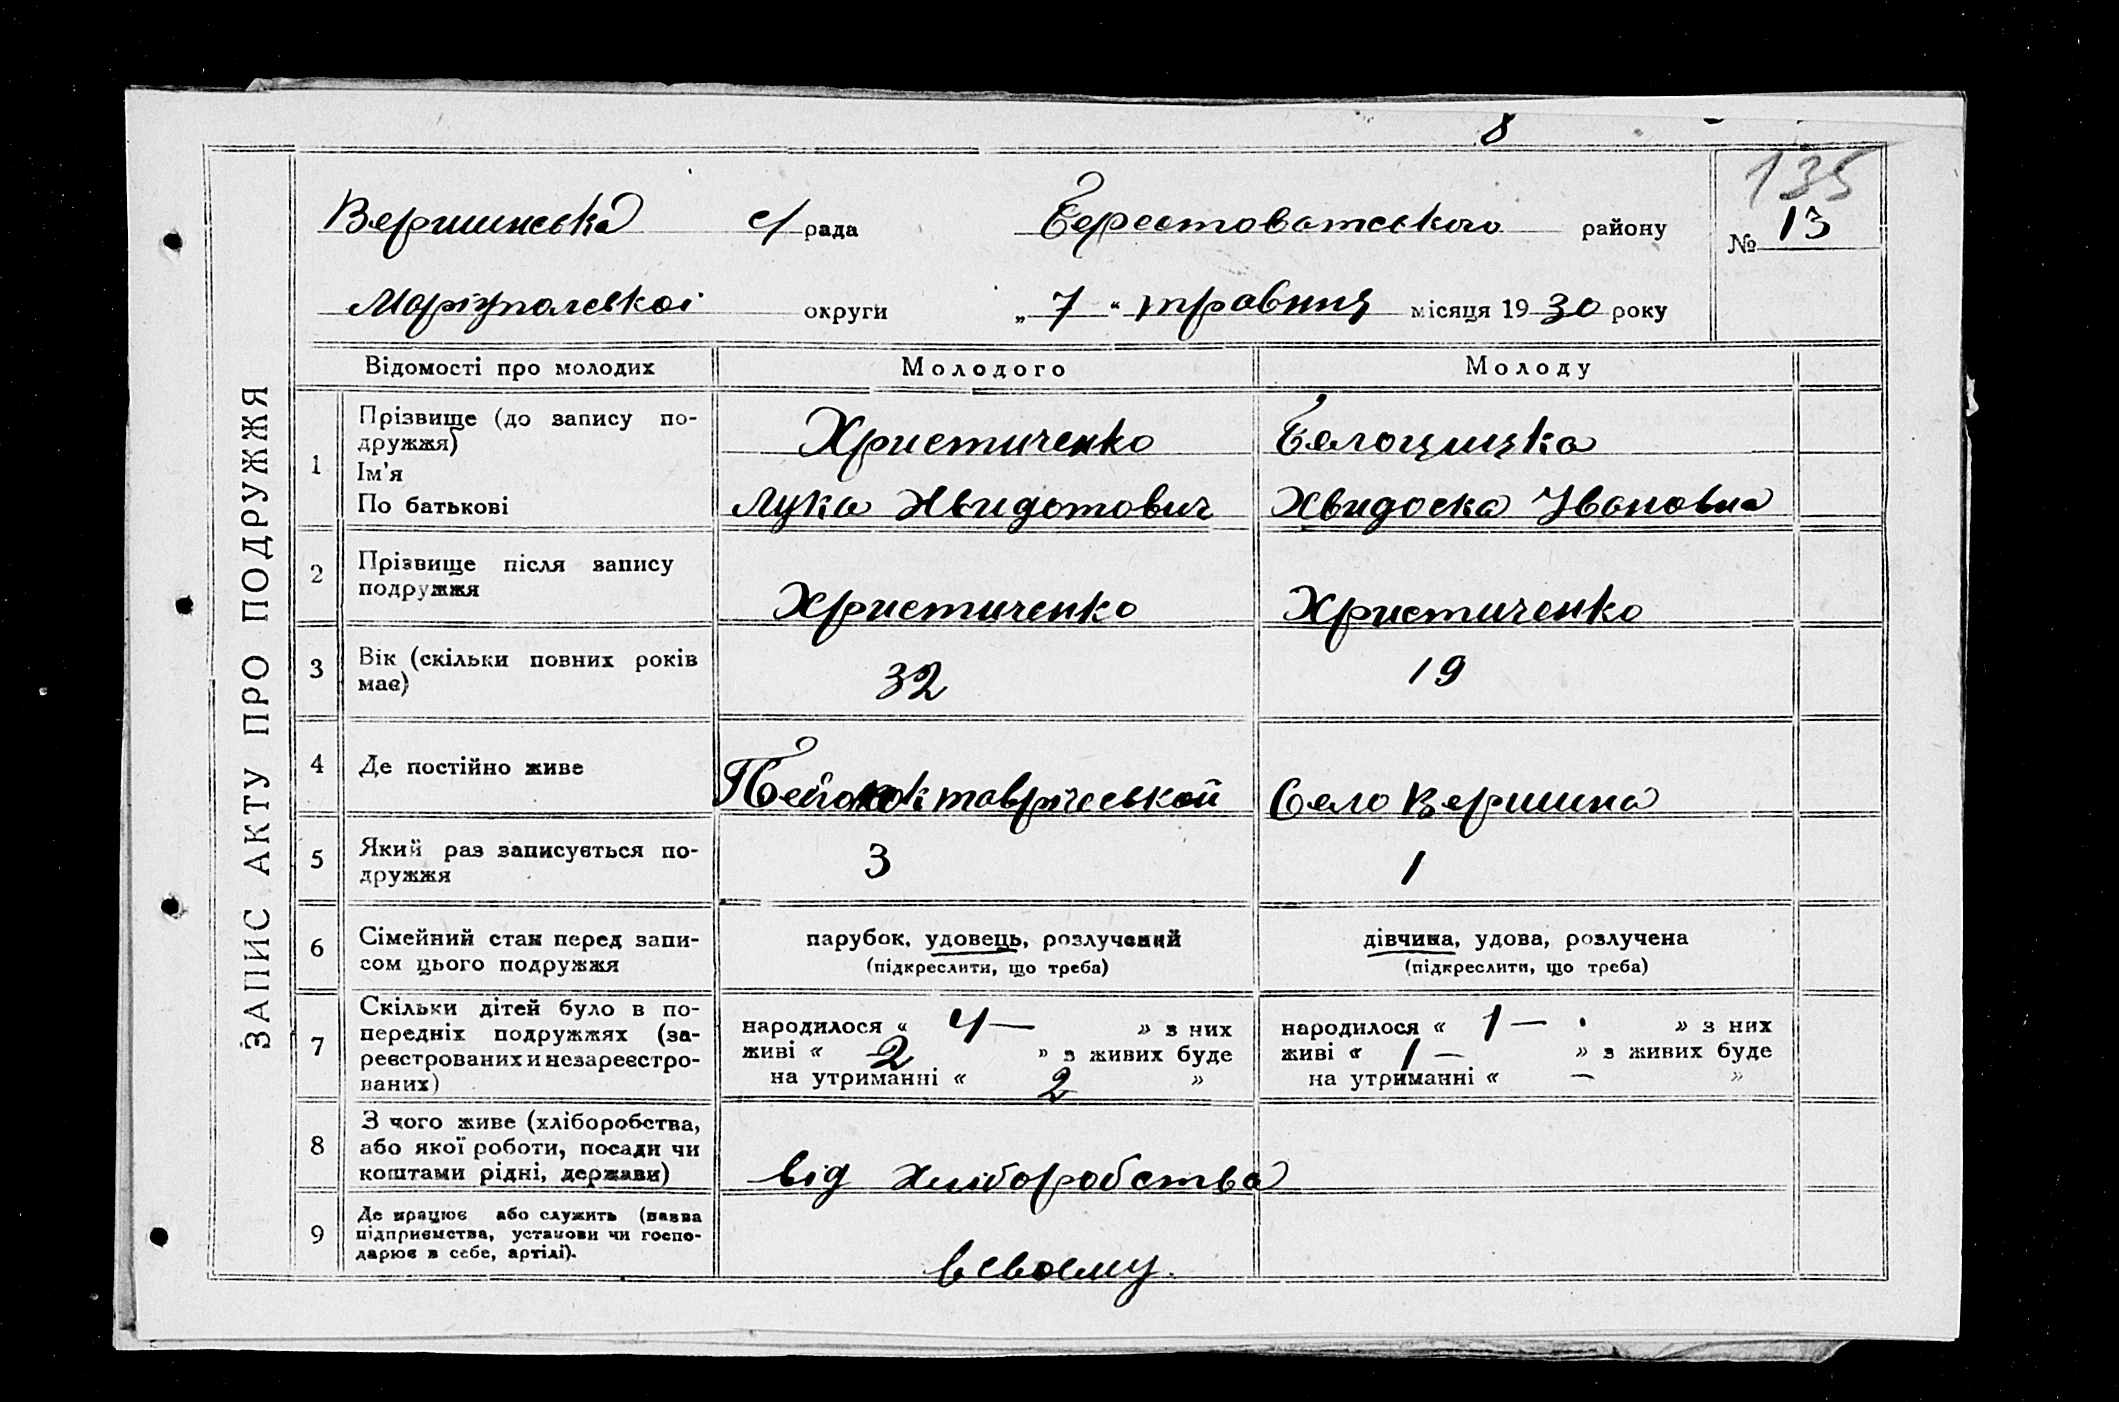 8
135
Вершинська с/рада Берестоватського району
№ 13
Маріупольської округи „ 7 “ травня місяця 1930 року
ЗАПИС АКТУ ПРО ПОДРУЖЖЯ
Відомості про молодих Молодого Молоду
1 Прізвище (до запису по-
дружжя) Христиченко
Ім'я
По батькові Лука Хвидотович Хвидоска Івановна
2 Прізвище після запису
подружжя Христиченко Христиченко
3 Вік (скільки повних років
має) 32 19
4 Де постійно живе Село Вершина
5 Який раз записується по-
дружжя 3 1
6 Сімейний стан перед запи-
сом цього подружжя
парубок, удовець, розлучений
(підкреслити, що треба)
дівчина, удова, розлучена
(підкреслити, що треба)
7 Скільки дітей було в по-
передніх подружжях (за-
реєстрованих и незареєстро-
ваних)
народилося « 4 — » з них
живі « 2 » з живих буде
на утриманні « 2 »
народилося « 1 — » з них
живі « 1 — » з живих буде
на утриманні « — »
8 З чого живе (хліборобства,
або якої роботи, посади чи
коштами рідні, держави)
від хліборобства
9 Де працює або служить (назва
підприємства, установи чи госпо-
дарює в себе, артілі).
в своєму.